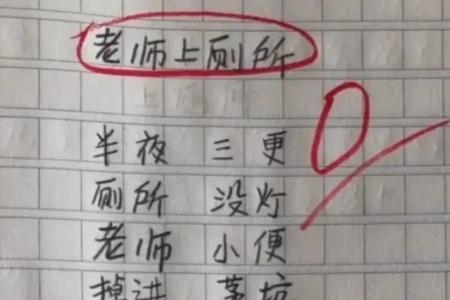 老师上厕所
半夜 三更
厕所 没灯
老师 小便
掉进 茅坑